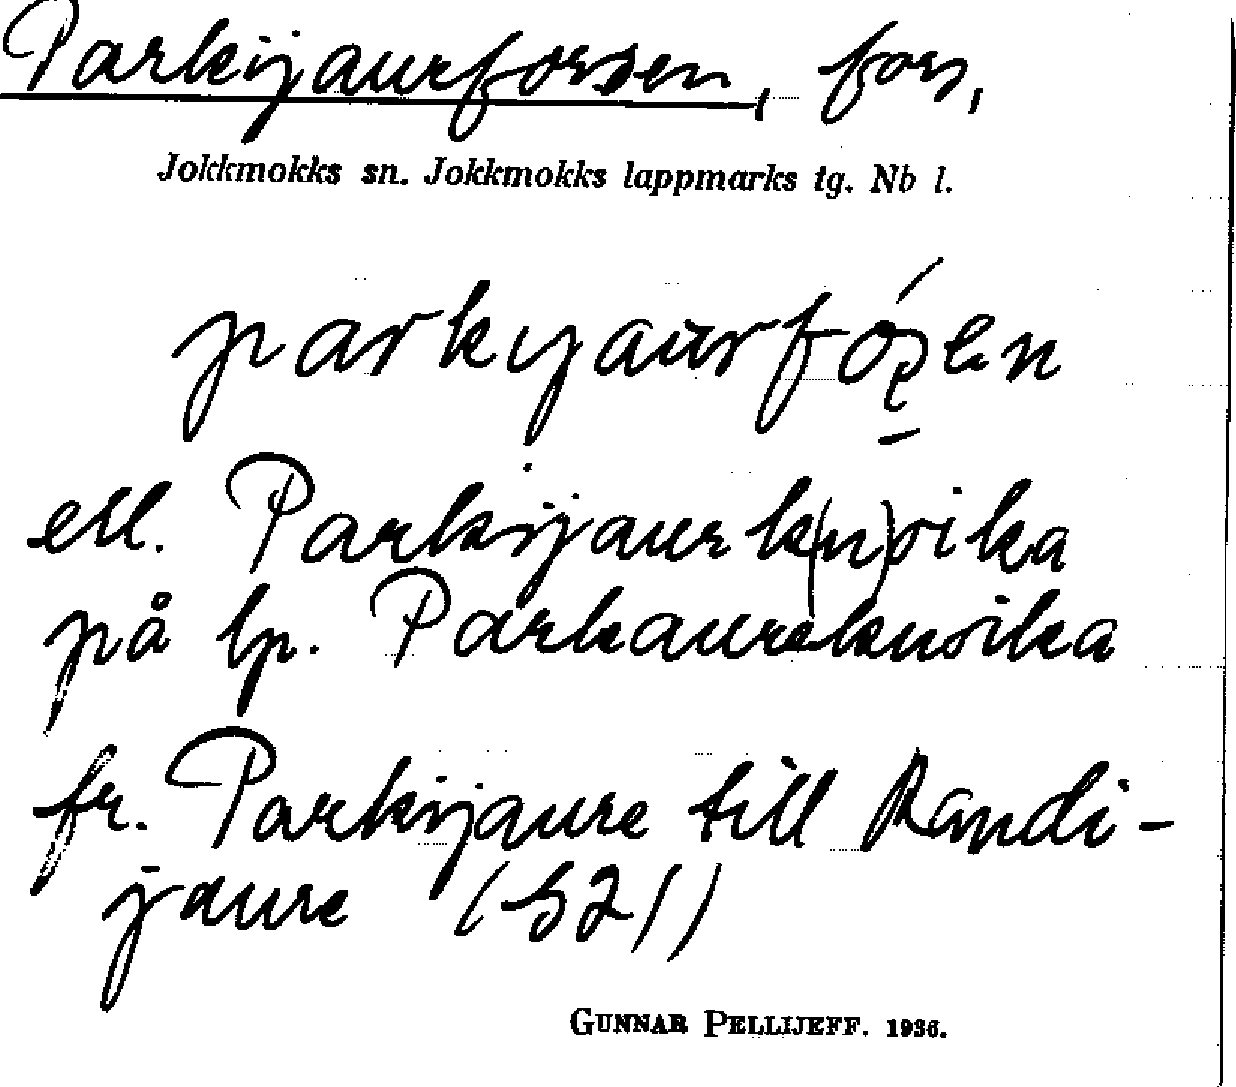 Parkijaurforsen, fors,
Jokkmokks sn. Jokkmokks lappmarks tg. Nb l.
ell. Parkijaurk(n)oika
på lp. Parkaureknoika
fr. Parkijaure till Randi-
jaure (521)
GUNNAR PELLIJEFF. 1936.